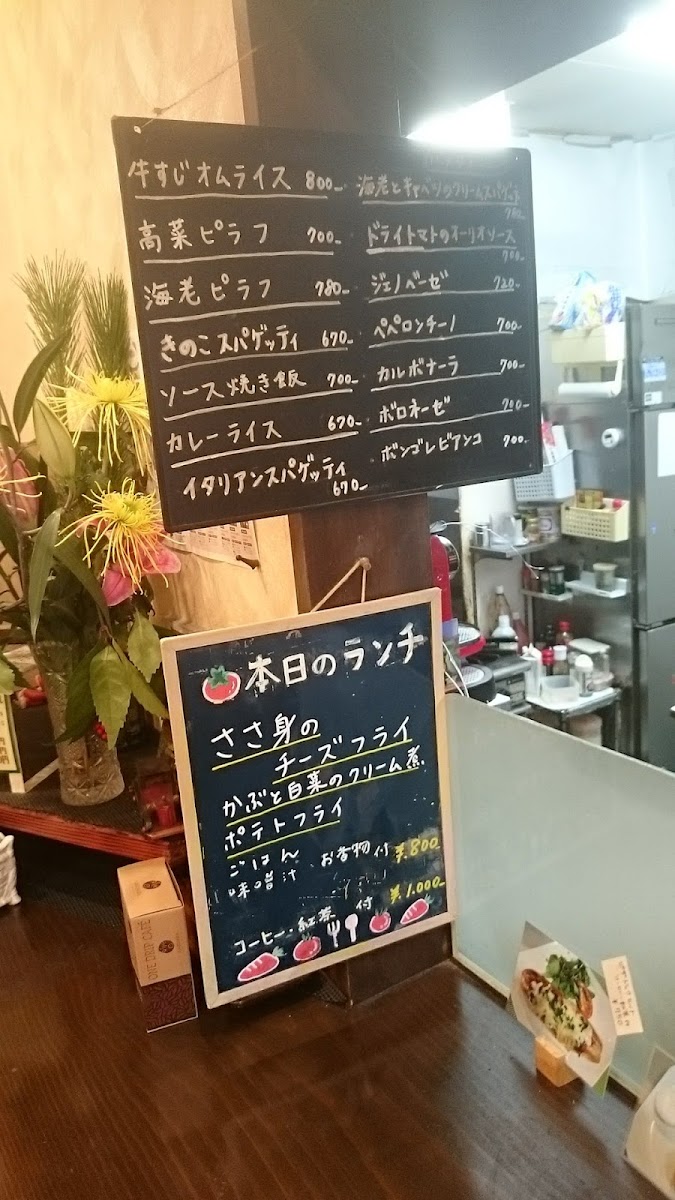 牛すじオムライス 800-
高菜ピラフ 700-
海老ピラフ 780-
きのこスパゲッティ 670-
ソース焼き飯 700-
カレーライス 670-
イタリアンスパゲッティ
670-
海老とキャベツのクリームスパゲッティ
780-
ドライトマトのオーリオソース
700-
ジェノベーゼ 720-
ペペロンチーノ 700-
カルボナーラ 700-
ボロネーゼ 700-
ボンゴレビアンコ 700-
本日のランチ
ささ身の
チーズフライ
かぶと白菜のクリーム煮
ポテトフライ
ごはん
味噌汁 お香物付 ¥800
¥1,000
コーヒー・紅茶 付
ONE DRIP CAFÉ